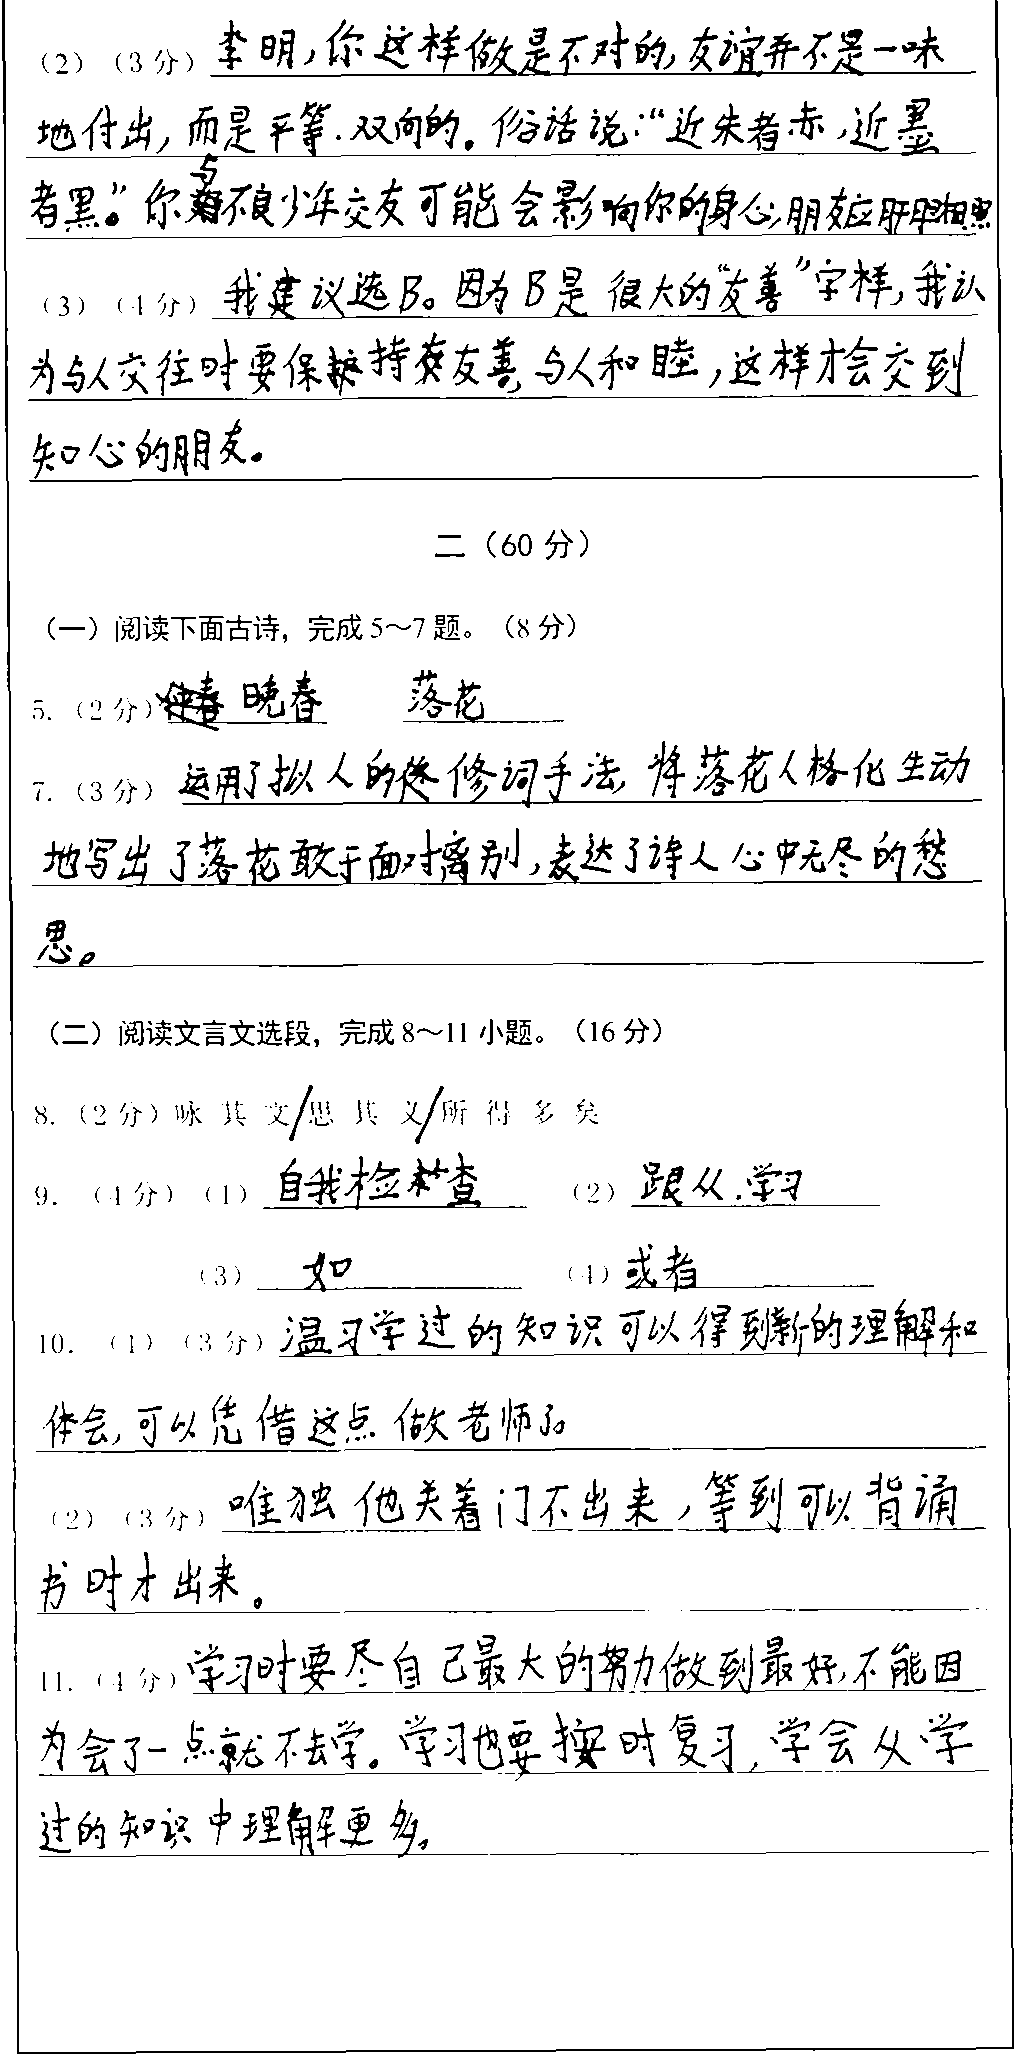 （2）（3分）李明，你这样做是不对的，友谊并不是一味
地付出，而是平等、双向的。俗话说：“近朱者赤，近墨
者黑。”你与不良少年交友可能会影响你的身心，朋友应肝胆相照
（3）（4分）我建议选B。因为B是很大的“友善”字样，我认
为与人交往时要保持友善，与人和睦，这样才会交到
知心的朋友。
二（60分）
（一）阅读下面古诗，完成5～7题。（8分）
5.（2分）晚春 落花
7.（3分）运用了拟人的修词手法，将落花人格化生动
地写出了落花敢于面对离别，表达了诗人心中无尽的愁
思。
（二）阅读文言文选段，完成8～11小题。（16分）
8.（2分）咏其文/思其义/所得多矣
9.（4分）（1）自我检查 （2）跟从、学习
（3）如 （4）或者
10.（1）（3分）温习学过的知识可以得到新的理解和
体会，可以凭借这点做老师了。
（2）（3分）唯独他关着门不出来，等到可以背诵
书时才出来。
11.（4分）学习时要尽自己最大的努力做到最好，不能因
为会了一点就不去学。学习也要按时复习，学会从学
过的知识中理解更多。